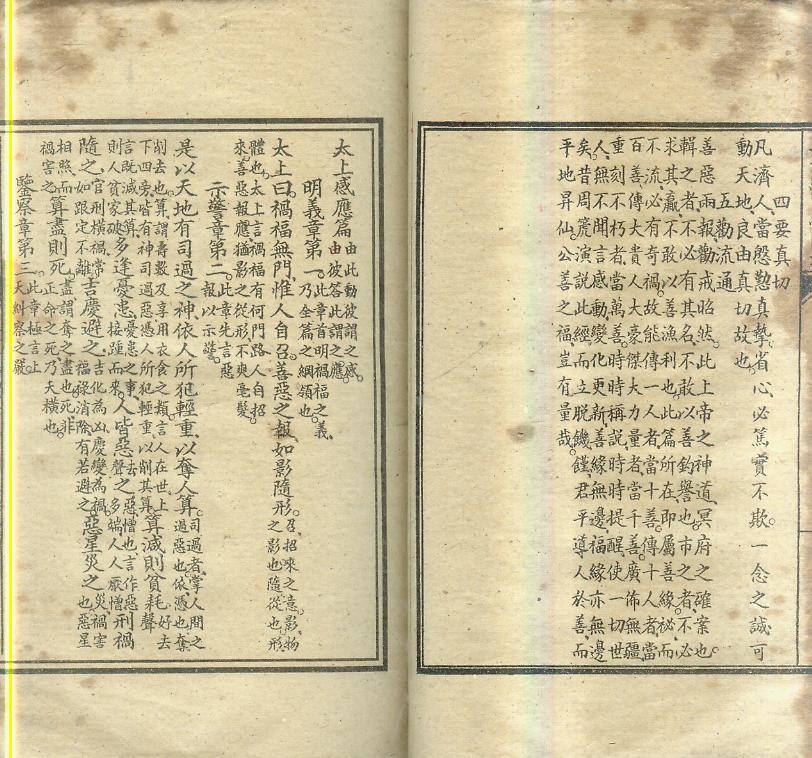 四要真切
凡濟人當慇懃真摯省心必篤實不欺一念之誠可
動天地良由真切故也
五勸流通
善惡兩報勸戒昭然此上帝之神道冥府之確案也
輯之者不必有其名不敢以善釣譽也市之者不必
求其贏不敢以善漁利也此篇所在即屬善緣秘而
不流必有奇禍故能傳一人者當十善傳十人者當
百善傳大貴人大豪傑大力量者當千善廣佈無疆
重刻不朽者當萬善時時稱說時時提醒使一切世
人無不周聞言感動變化更新善緣無邊福緣亦無邊
矣昔麂演說感經而立脫饑饉君平導人於善而
平地昇仙公善之福豈有量哉
太上感應篇由此動彼謂之感
由彼答此謂之應
明義章第一此章首明禍福之義
乃全篇之綱領也
太上曰禍福無門惟人自召善惡之報如影隨形召招來之意影物
之影也隨從也形
體也太上言禍福有何門路人自招
來善惡報應猶影之從形不爽毫髮
示警章第二此章先言惡
報以示警
是以天地有司過之神依人所犯輕重以奪人算司過者掌人間之
過惡也依憑也奪
削去也算謂壽數及享用衣食之類言人在世上
下四旁皆有神司過惡憑人所犯輕重以削其算算減則貧耗好去
聲
言既減其算
則人貧家破多逢憂患憂患之事
接踵而來人皆惡去聲之惡憎也言作惡
多端人人厭憎刑禍
隨之官刑橫禍常
如跟定不離吉慶避之吉化為凶慶變為禍
福祿消除有若避之惡星災之災禍害
也惡星
相照而
禍害之算盡則死盡謂奪之盡也死非
正命之死乃天橫也
鑒察章第三此章極言上
天糾察之嚴